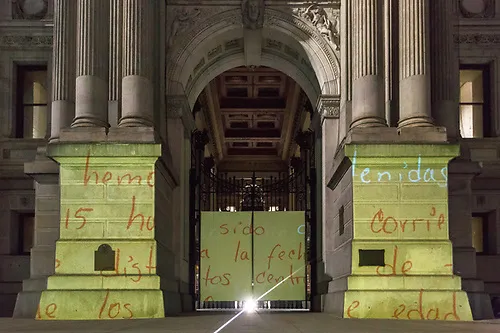 hemo
15 ho
list
e los
sido
a la fech
tos centr
tenidas
Corrie
de
e edad